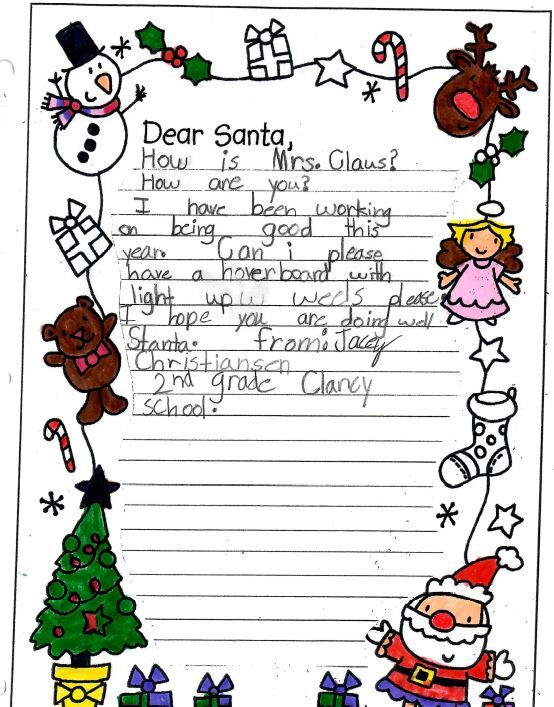 Dear Santa,
How is Mrs. Claus?
How are you?
I have been working
on being good this
year. Can i please
have a hoverboard with
light up weels please.
I hope you are doing well
Stanta. from: Jacey
Christiansen
2nd grade Clancy
school.